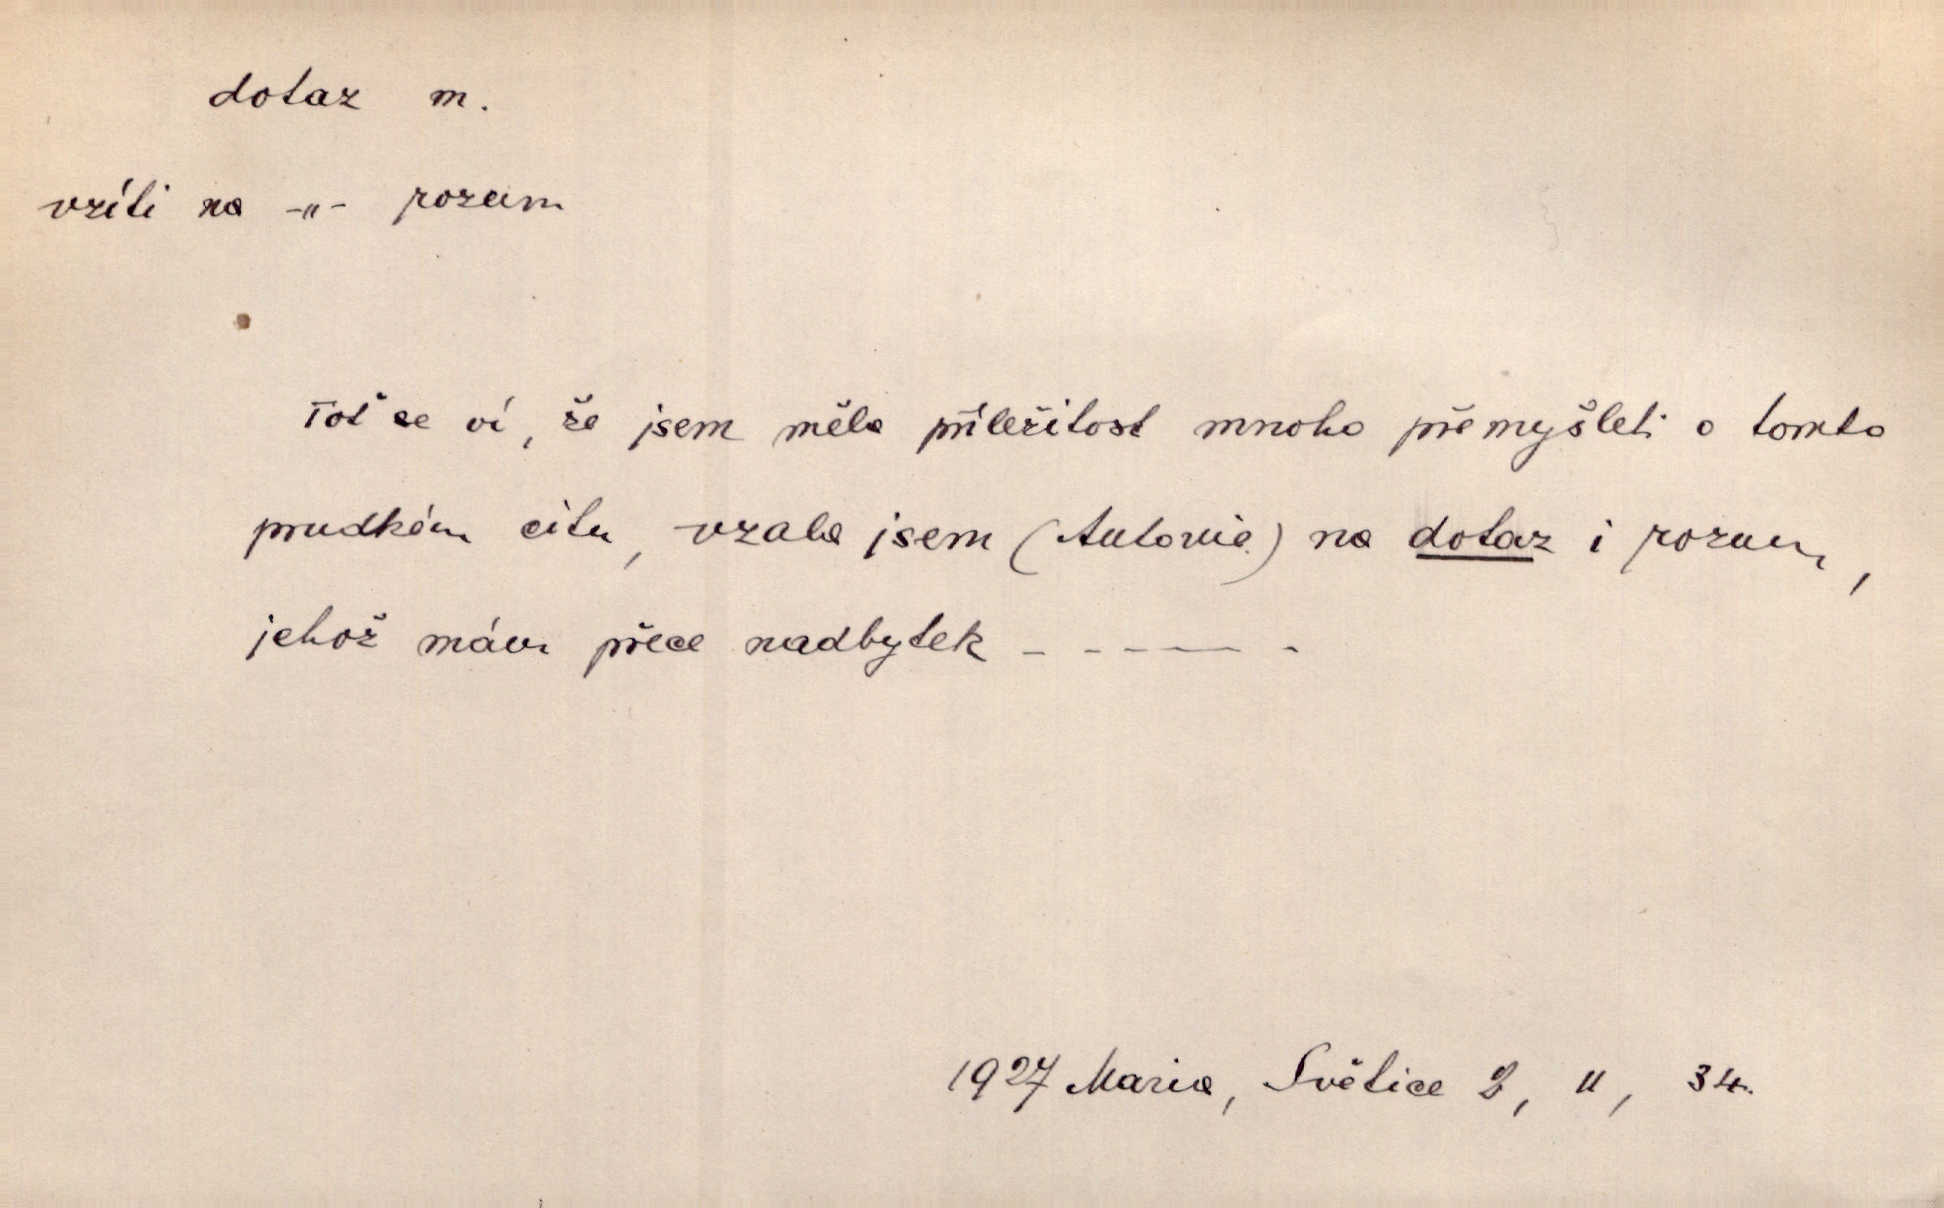 dotaz m.
vzíti na -„- rozum
Toť se ví, že jsem měla příležitost mnoho přemyšleti o tomto
prudkém citu, vzala jsem (Antonie) na dotaz i rozum,
jehož mám přece nadbytek - - - — - -
1927 Maria, Světice 2, II, 34.